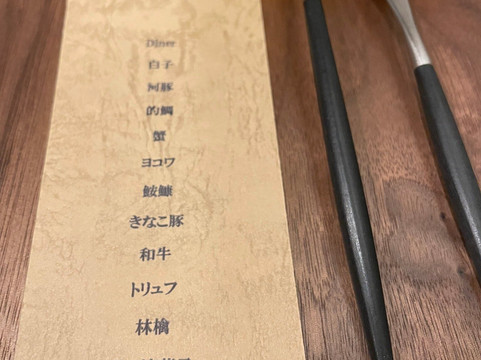 Diner
白子
河豚
的鯛
蟹
ヨコワ
鮟鱇
きなこ豚
和牛
トリュフ
林檎